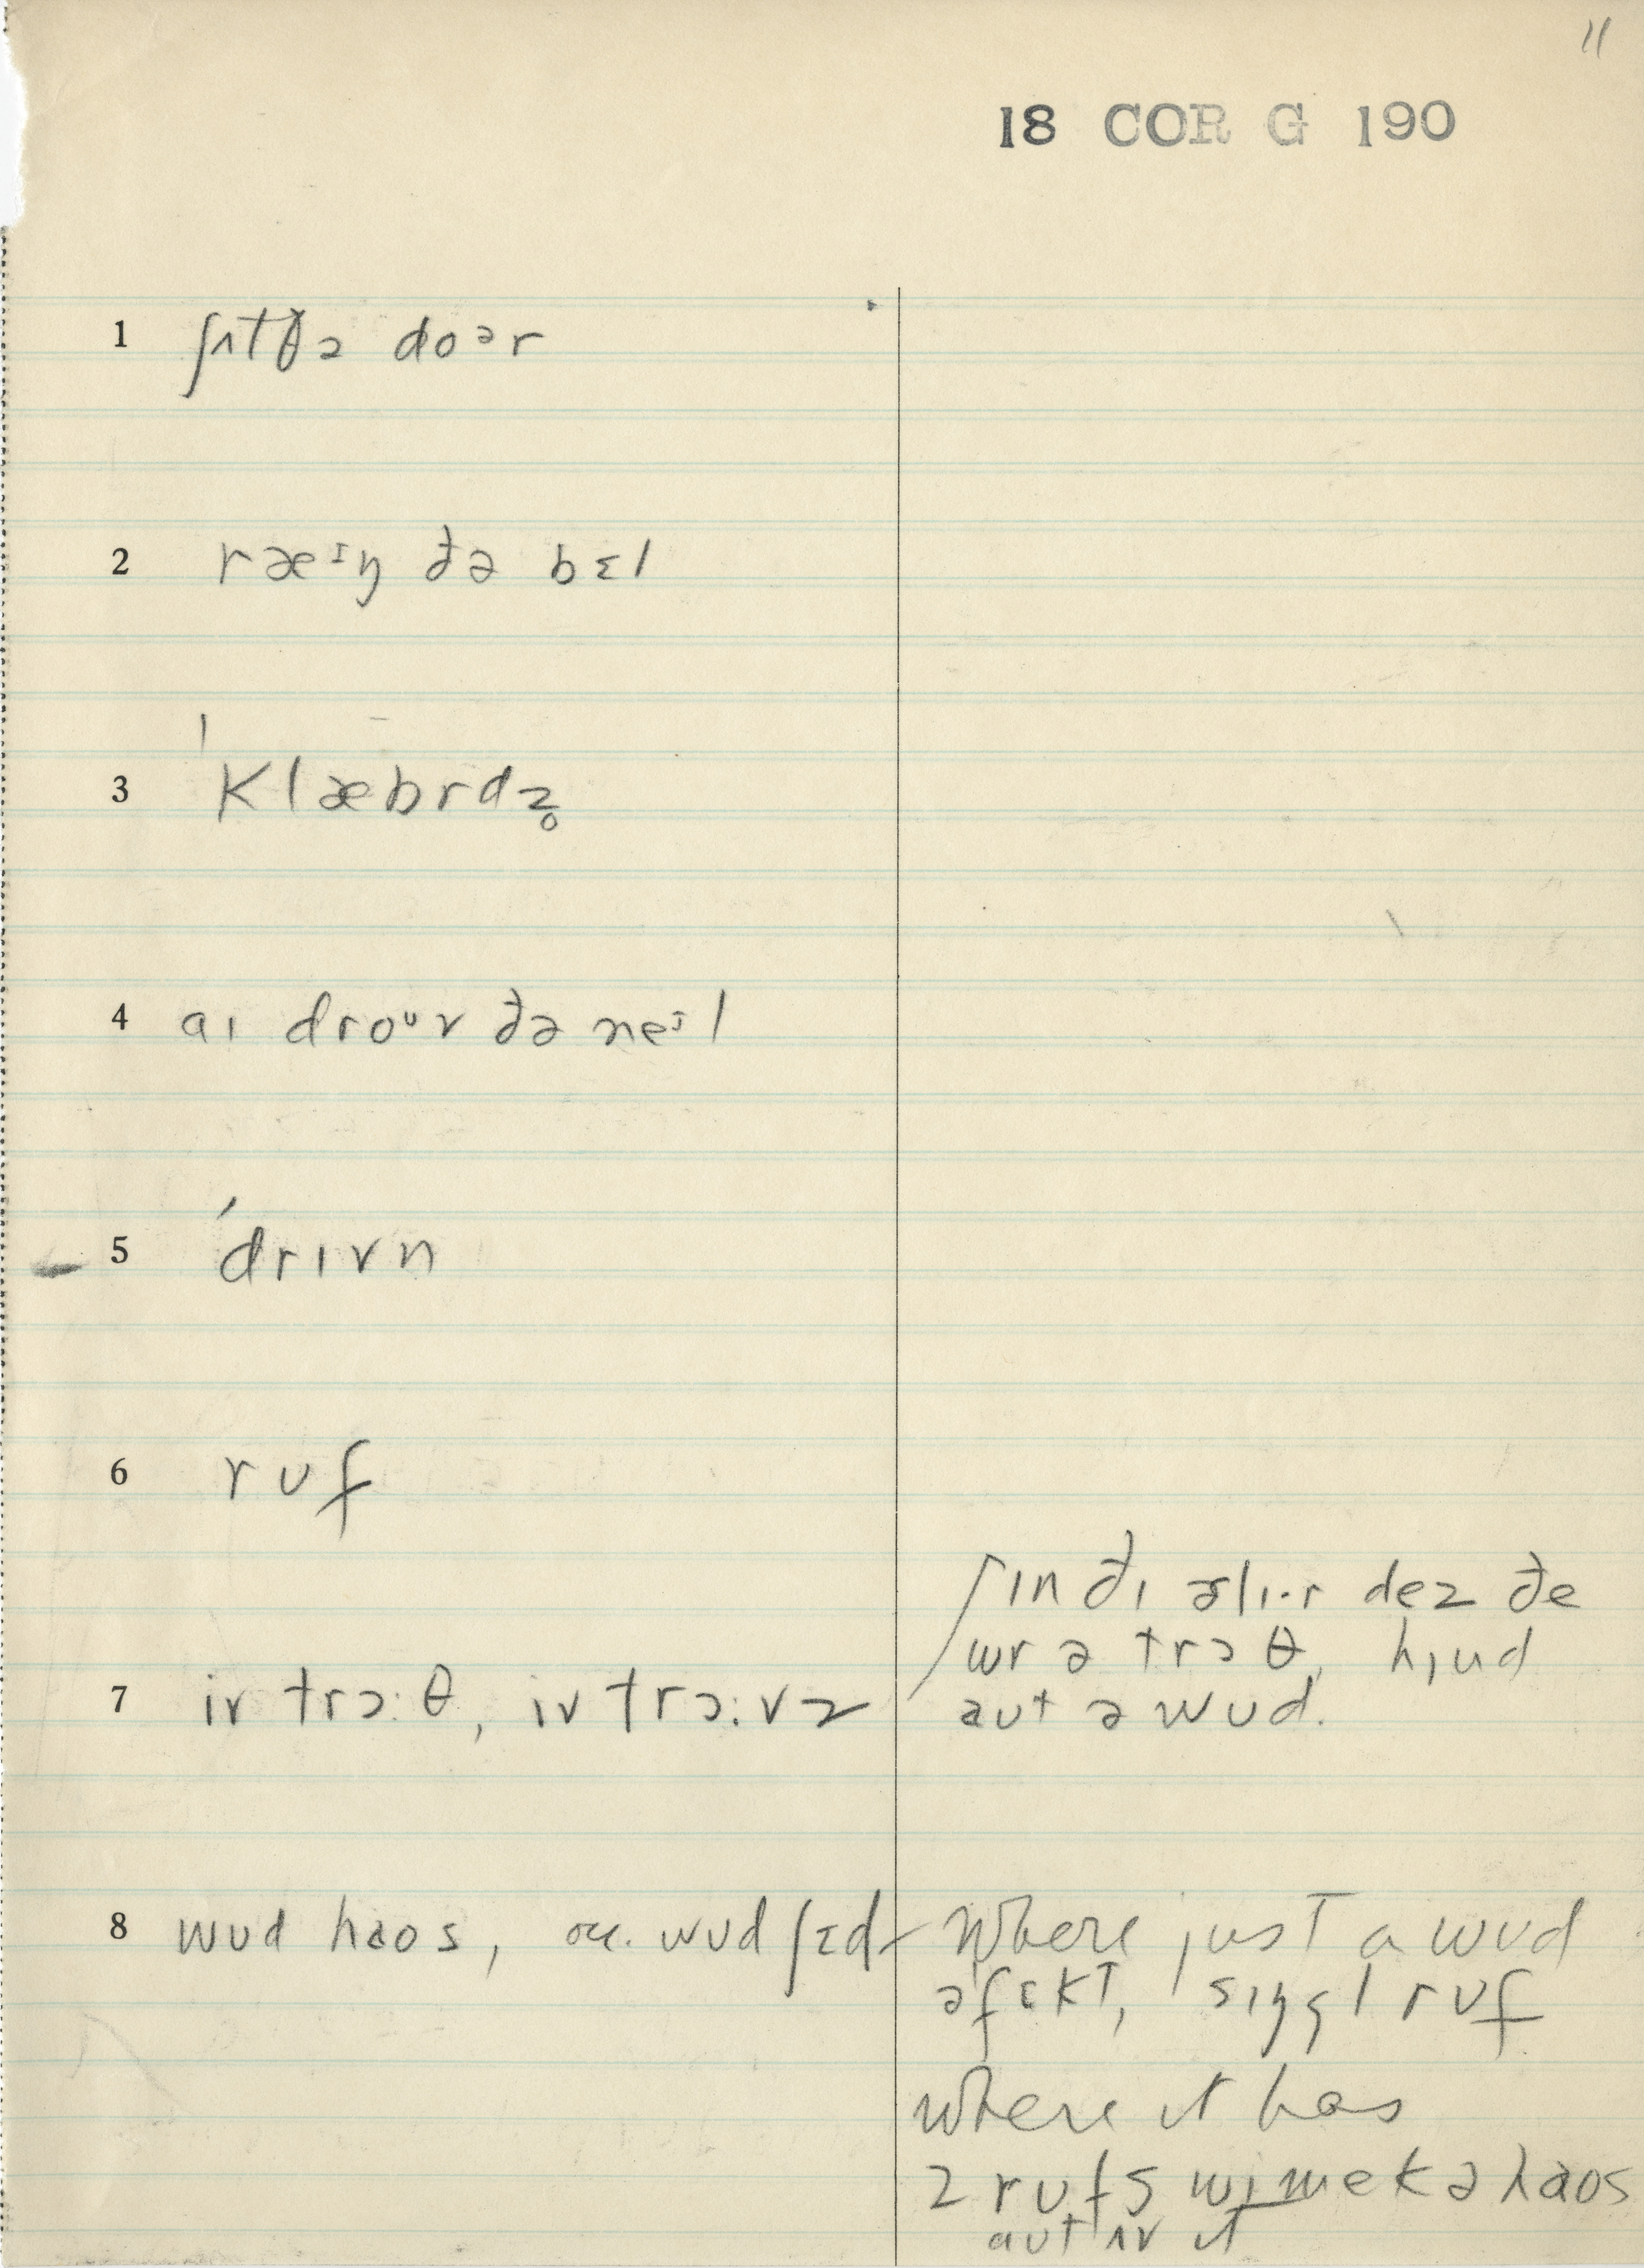 11
18 COR G 190
1 ʃʌtðə doᵊr
2 ræᶦŋ ðə bɛl
3 ˈklæbrdz̥
4 aɪ droᶷv ðə neᶦl
5 ˈdrɪvn
6 rʊf
7 iv trɔ:θ, iv trɔ:vz
ɪn ðɪ ɚlɪ·r dez ðe
wr ə trɔθ, hɪud
aʊt ə wʊd.
8 wʊd haos, occ. wʊd ʃɛd
Where just a wʊd
əfɛkt, sɪŋgl rʊf
where it has
2 rʊfs wi mek ə haos
aʊt ʌv it